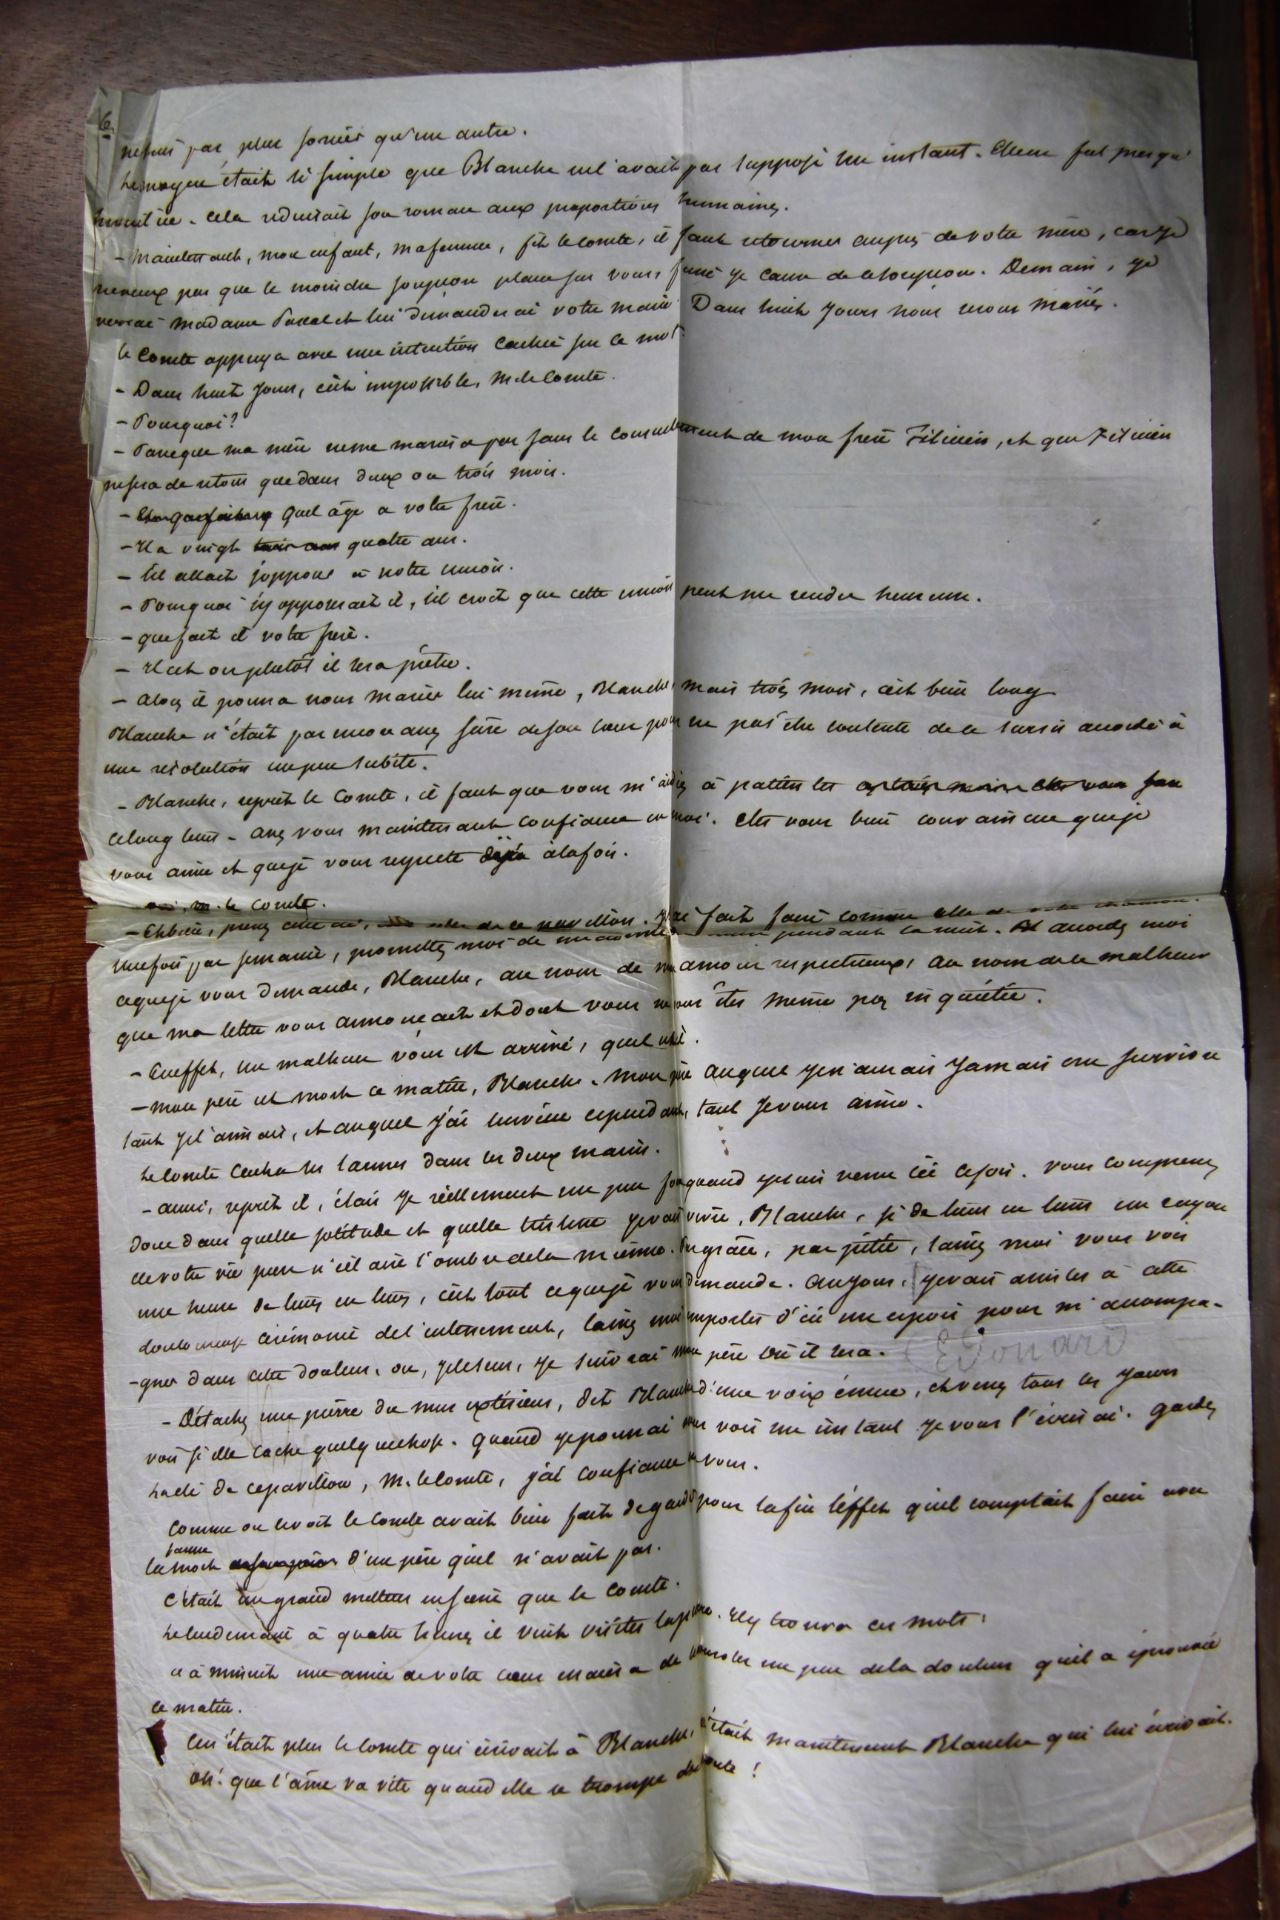 6
pas plus sorcier qu'une autre.
Le moyen était si simple que Blanche ne l'avait pas supposé un instant. Elle en fut presqu'
humiliée. Cela réduisait son roman aux proportions humaines.
- Maintenant, mon enfant, ma femme, fit le comte, il faut retourner auprès de votre mère, car je
ne veux pas que le moindre soupçon plane sur vous, fussé je cause de ce soupçon. Demain, je
verrai Madame Pascal et lui demanderai votre main. Dans huit jours nous serons mariés.
le Comte appuya avec une intention cachée sur ce mot.
- Dans huit jours, c'est impossible, M. le Comte.
- Pourquoi?
- Parceque ma mère ne me mariera pas sans le consentement de mon frère Félicien, et que Félicien
ne sera de retour que dans deux ou trois mois.
- Quel âge a votre frère.
- Il a vingt trois ans quatre ans.
- S'il allait s'opposer à notre union.
- Pourquoi s'y opposerait il, s'il croit que cette union peut me rendre heureuse.
- que fait il votre frère.
- Il est ou plutôt il sera prêtre.
- Alors il pourra nous marier lui même, Blanche, mais trois mois, c'est bien long
Blanche n'était pas encore assez sûre de son cœur pour ne pas être contente de ce sursis accordé à
une résolution un peu subite.
- Blanche, reprit le Comte, il faut que vous m'aidiez à patienter
ce long tems. Avez vous maintenant confiance en moi. Etes vous bien convaincue que je
vous aime et que je vous respecte déjà à la fois.
- oui, m. le comte.
- Eh bien, prenez cette clé, de ce pavillon. J'ai fait faire comme celle de votre chambre.
Une fois par semaine, promettez moi de pendant la nuit. Accordez moi
ce que je vous demande, Blanche, au nom de mon amour respectueux, au nom de ce malheur
que ma lettre vous annoncait et dont vous ne vous êtes même pas inquiétée.
- En effet, un malheur vous est arrivé, quel est il.
- Mon père est mort ce matin, Blanche. Mon père auquel je n'aurais jamais cru survivre
tant je l'aimais, et auquel j'ai survécu cependant, tant je vous aime.
Le Comte cacha ses larmes dans ses deux mains.
- Aussi, reprit il, étais je réellement un peu fou quand je suis venu ici ce soir. Vous comprenez
donc dans quelle solitude et quelle tristesse je vais vivre, Blanche, si de tems en tems un rayon
de votre vie pure n'éclaire l'ombre de la mienne. Par grâce, par pitié, laissez moi vous voir
une heure de tems en tems, c'est tout ce que je vous demande. Au jour, je vais assister à cette
douloureuse cérémonie de l'enterrement, laissez moi emporter d'ici un espoir pour m'accompa-
-gner dans cette douleur, ou, je le sens, je suivrai mon père où il sera. Edouard
- Détachez une pierre du mur extérieur, dit Blanche d'une voix émue, et venez tous les jours
voir si elle cache quelque chose. Quand je pourrai vous voir un instant je vous l'écrirai. Gardez
la clé de ce pavillon, M. le Comte, j'ai confiance en vous.
Comme on le voit le Comte avait bien fait de garder pour la fin l'effet qu'il comptait faire avec
la fausse mort d'un père qu'il n'avait pas.
C'était un grand metteur en scène que le Comte.
Le lendemain à quatre heures il vint visiter la pierre. Il y trouva ces mots:
« à minuit une amie de votre cœur essaiera de consoler un peu de la douleur qu'il a éprouvée
ce matin.
Ce n'était plus le Comte qui écrivait à Blanche, c'était maintenant Blanche qui lui écrivait.
Oh! que l'âme va vite quand elle se trompe de route!